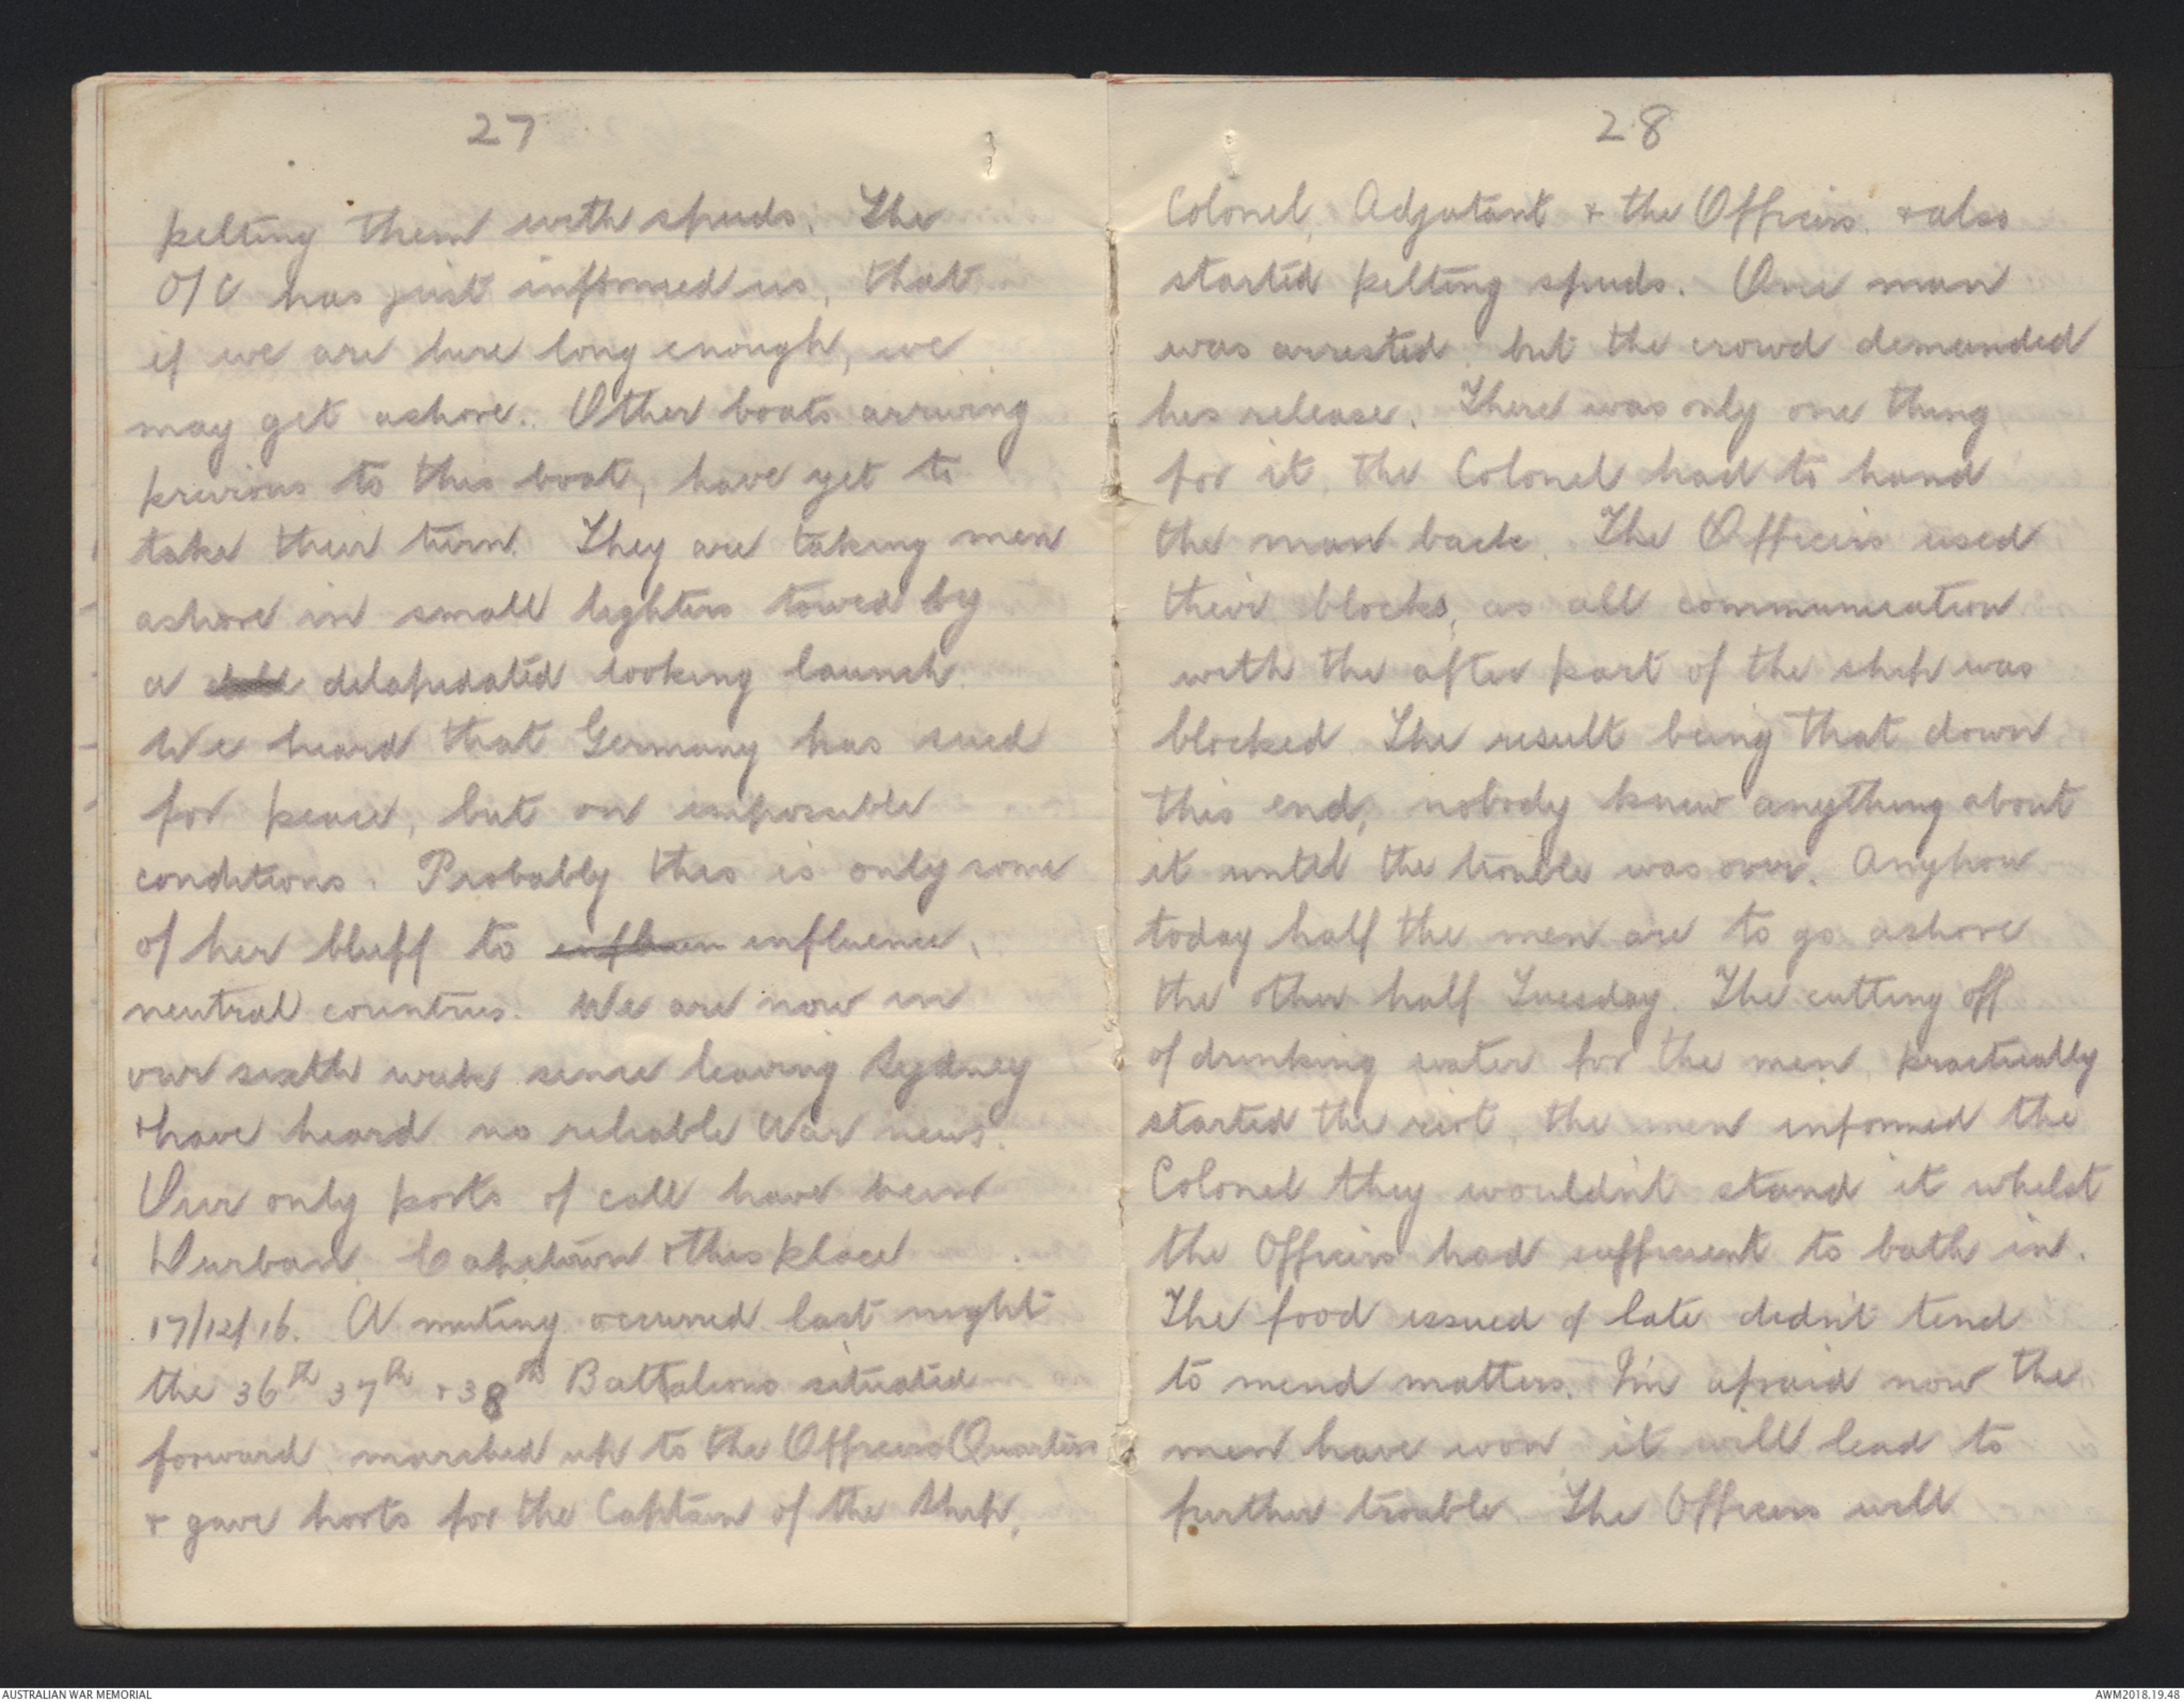 27
pelting them with spuds. The
O/C has just informed us, that
if we are here long enough, we
may get ashore. Other boats arriving
previous to this boat, have yet to
take their turn. They are taking men
ashore in small lighters towed by
a delapidated looking launch
We heard that Germany has sued
for peace, but on impossible
conditions. Probably this is only some
of her bluff to influen influence,
neutral countries. We are now in
our sixth week since leaving Sydney
& have heard no reliable War news.
Our only ports of call have been
Durban, Capetown & this place
17/12/16. A mutiny occurred last night
the 36th 37th & 38th Battalions situated
forward, marched up to the Officers Quarters
& gave hoots for the Captain of the Ship,
28
Colonel, Adjutant & the Officers, & also
started pelting spuds. One man
was arrested, but the crowd demanded
his release. There was only one thing
for it, the Colonel had to hand
the man back. The Officers used
their blocks, as all communication
with the after part of the ship was
blocked. The result being that down
this end, nobody knew anything about
it until the trouble was over. Anyhow
today half the men are to go ashore
the other half Tuesday. The cutting off
of drinking water for the men, practically
started the riot, the men informed the
Colonel they wouldn't stand it whilst
the Officers had sufficient to bath in.
The food issued of late didn't tend
to mend matters. I'm afraid now the
men have won, it will lead to
further trouble. The Officers will
AUSTRALIAN WAR MEMORIAL
AWM2018.19.48